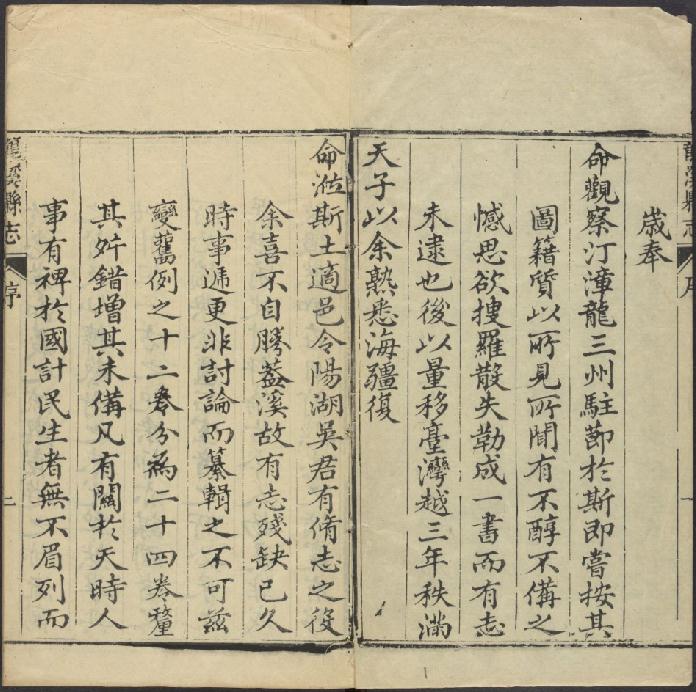 歳奉
命觀察汀漳龍三州駐莭於斯即嘗按其
圖籍質以所見所聞有不醇不備之
憾思欲搜羅散失勒成一書而有志
未逮也後以量移臺灣越三年秩滿
天子以余熟悉海疆復
命涖斯土適邑令陽湖吳君有脩志之役
余喜不自勝葢溪故有志殘缺已久
時事遞更非討論而纂輯之不可兹
變舊例之十二卷分為二十四卷釐
其舛錯增其未備凡有關於天時人
事有裨於國計民生者無不眉列而
龍溪縣志
序
二